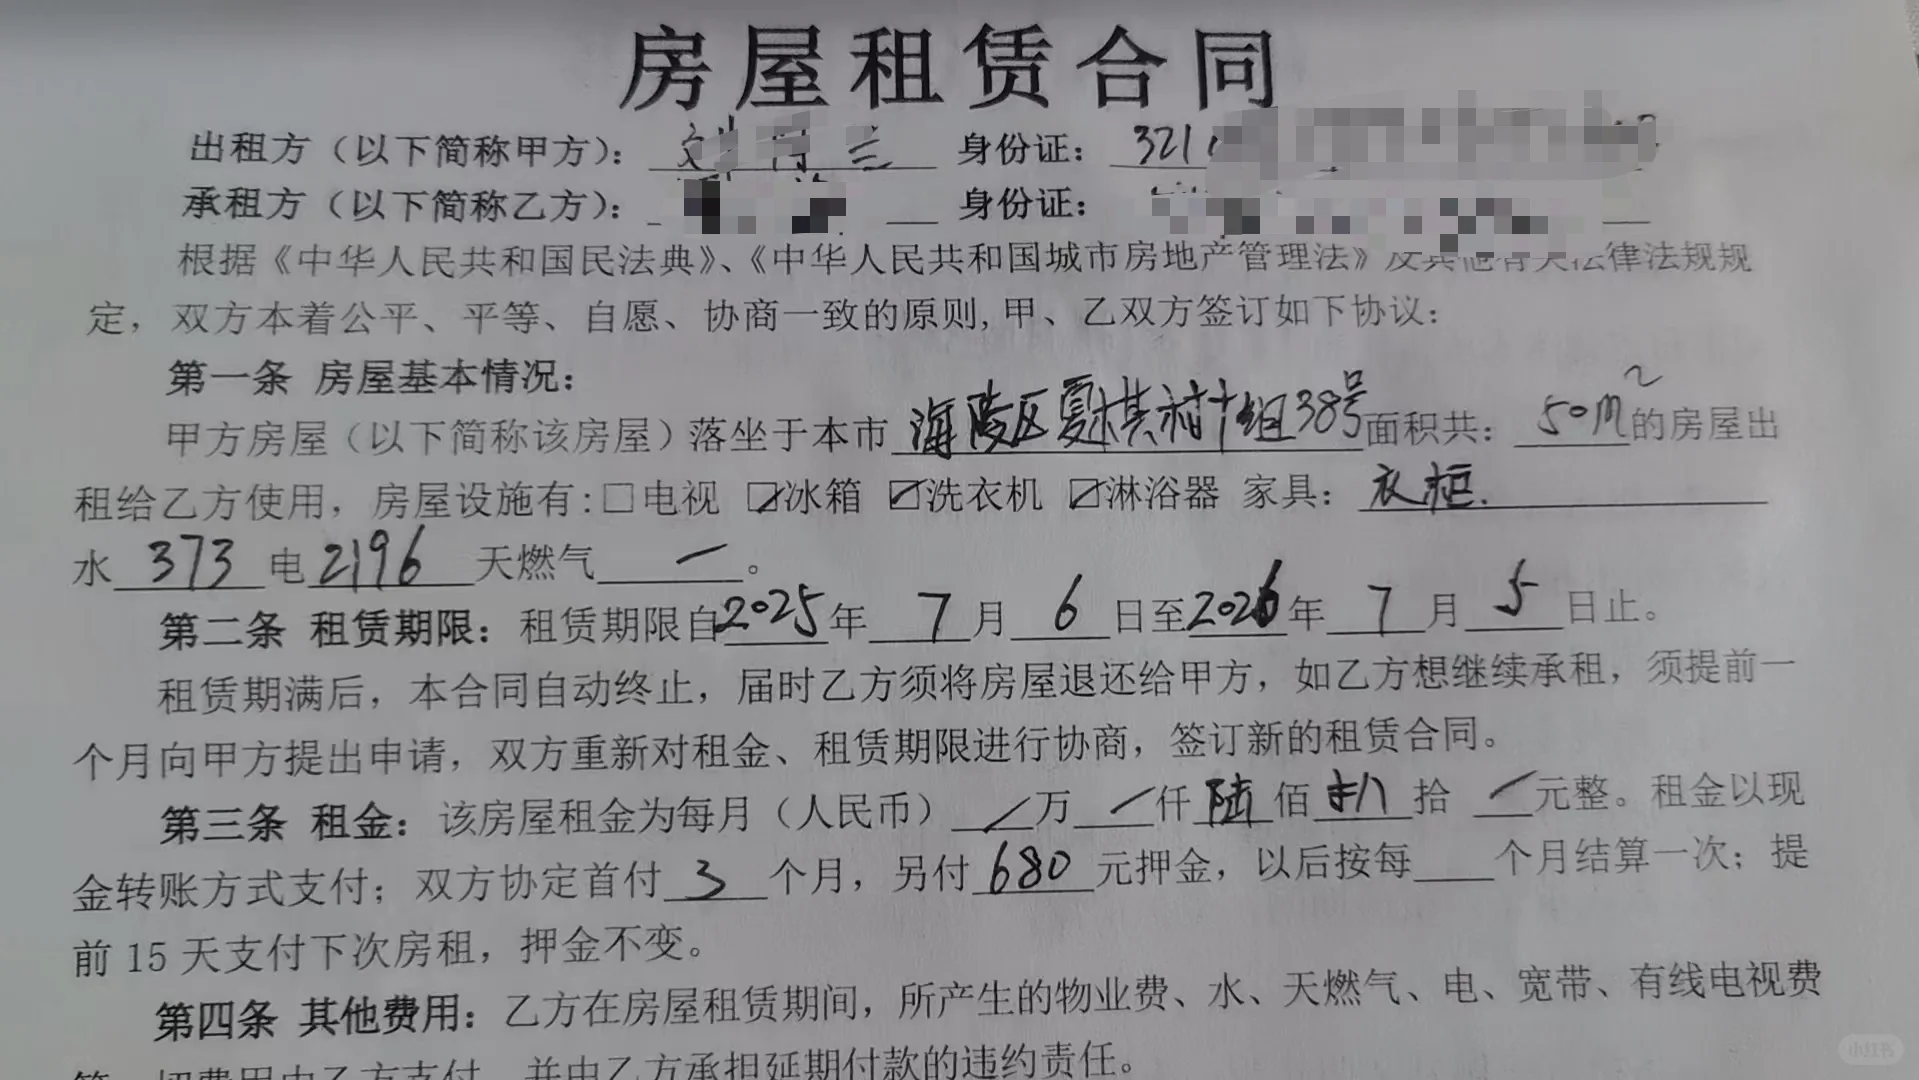 房屋租赁合同
出租方（以下简称甲方）： 兰 身份证：321
承租方（以下简称乙方）： 身份证：
根据《中华人民共和国民法典》、《中华人民共和国城市房地产管理法》及其他有关法律法规规
定，双方本着公平、平等、自愿、协商一致的原则,甲、乙双方签订如下协议：
第一条 房屋基本情况：
甲方房屋（以下简称该房屋）落坐于本市 海陵区夏棋村十组38号 面积共：50m²的房屋出
租给乙方使用，房屋设施有:□电视 ☑冰箱 ☑洗衣机 ☑淋浴器 家具：衣柜.
水 373 电 2196 天燃气 — 。
第二条 租赁期限：租赁期限自2025年 7 月 6 日至2026年 7 月 5 日止。
租赁期满后，本合同自动终止，届时乙方须将房屋退还给甲方，如乙方想继续承租，须提前一
个月向甲方提出申请，双方重新对租金、租赁期限进行协商，签订新的租赁合同。
第三条 租金：该房屋租金为每月（人民币） / 万 / 仟 陆 佰 捌 拾 / 元整。租金以现
金转账方式支付；双方协定首付 3 个月，另付 680 元押金，以后按每____个月结算一次；提
前 15 天支付下次房租，押金不变。
第四条 其他费用：乙方在房屋租赁期间，所产生的物业费、水、天燃气、电、宽带、有线电视费
等一切费用由乙方支付，并由乙方承担延期付款的违约责任。
小红书